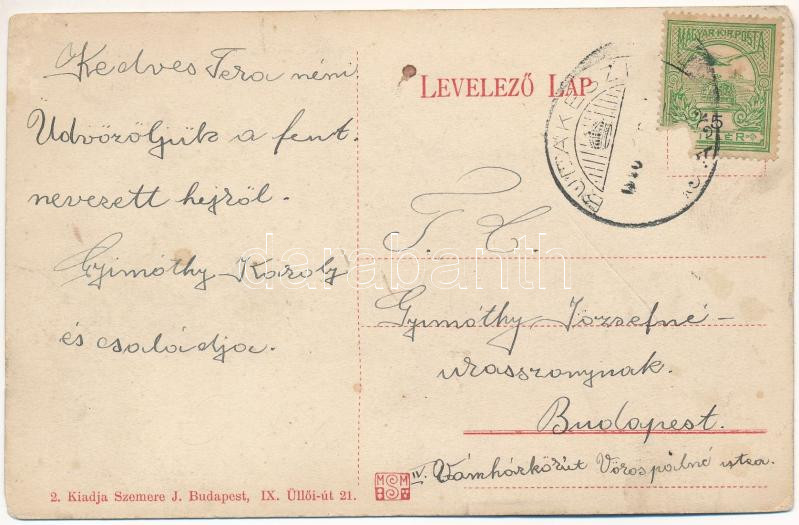 Kedves Tera néni
Üdvözöljük a fent.
nevezett hejről.
Gyimóthy Karoly
és családja.
LEVELEZŐ LAP
MAGYAR KIR. POSTA
BUDAKESZ
T. C.
Gyimóthy Józsefné
urasszonynak.
Budapest.
IV. Vámházkörút Vörospálné utca.
2. Kiadja Szemere J. Budapest, IX. Üllői-út 21.
darabanth